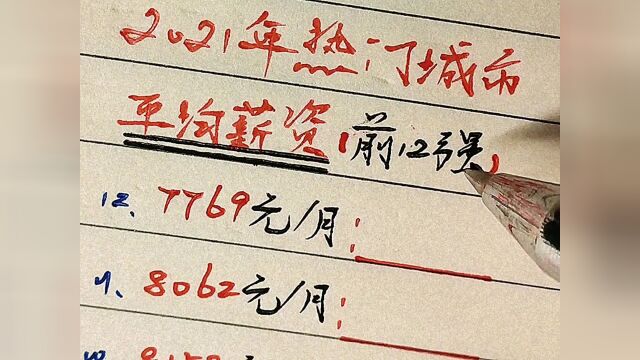 2021年热门城市
平均薪资(前12强)
12、7769元/月:
11、8062元/月:
10、